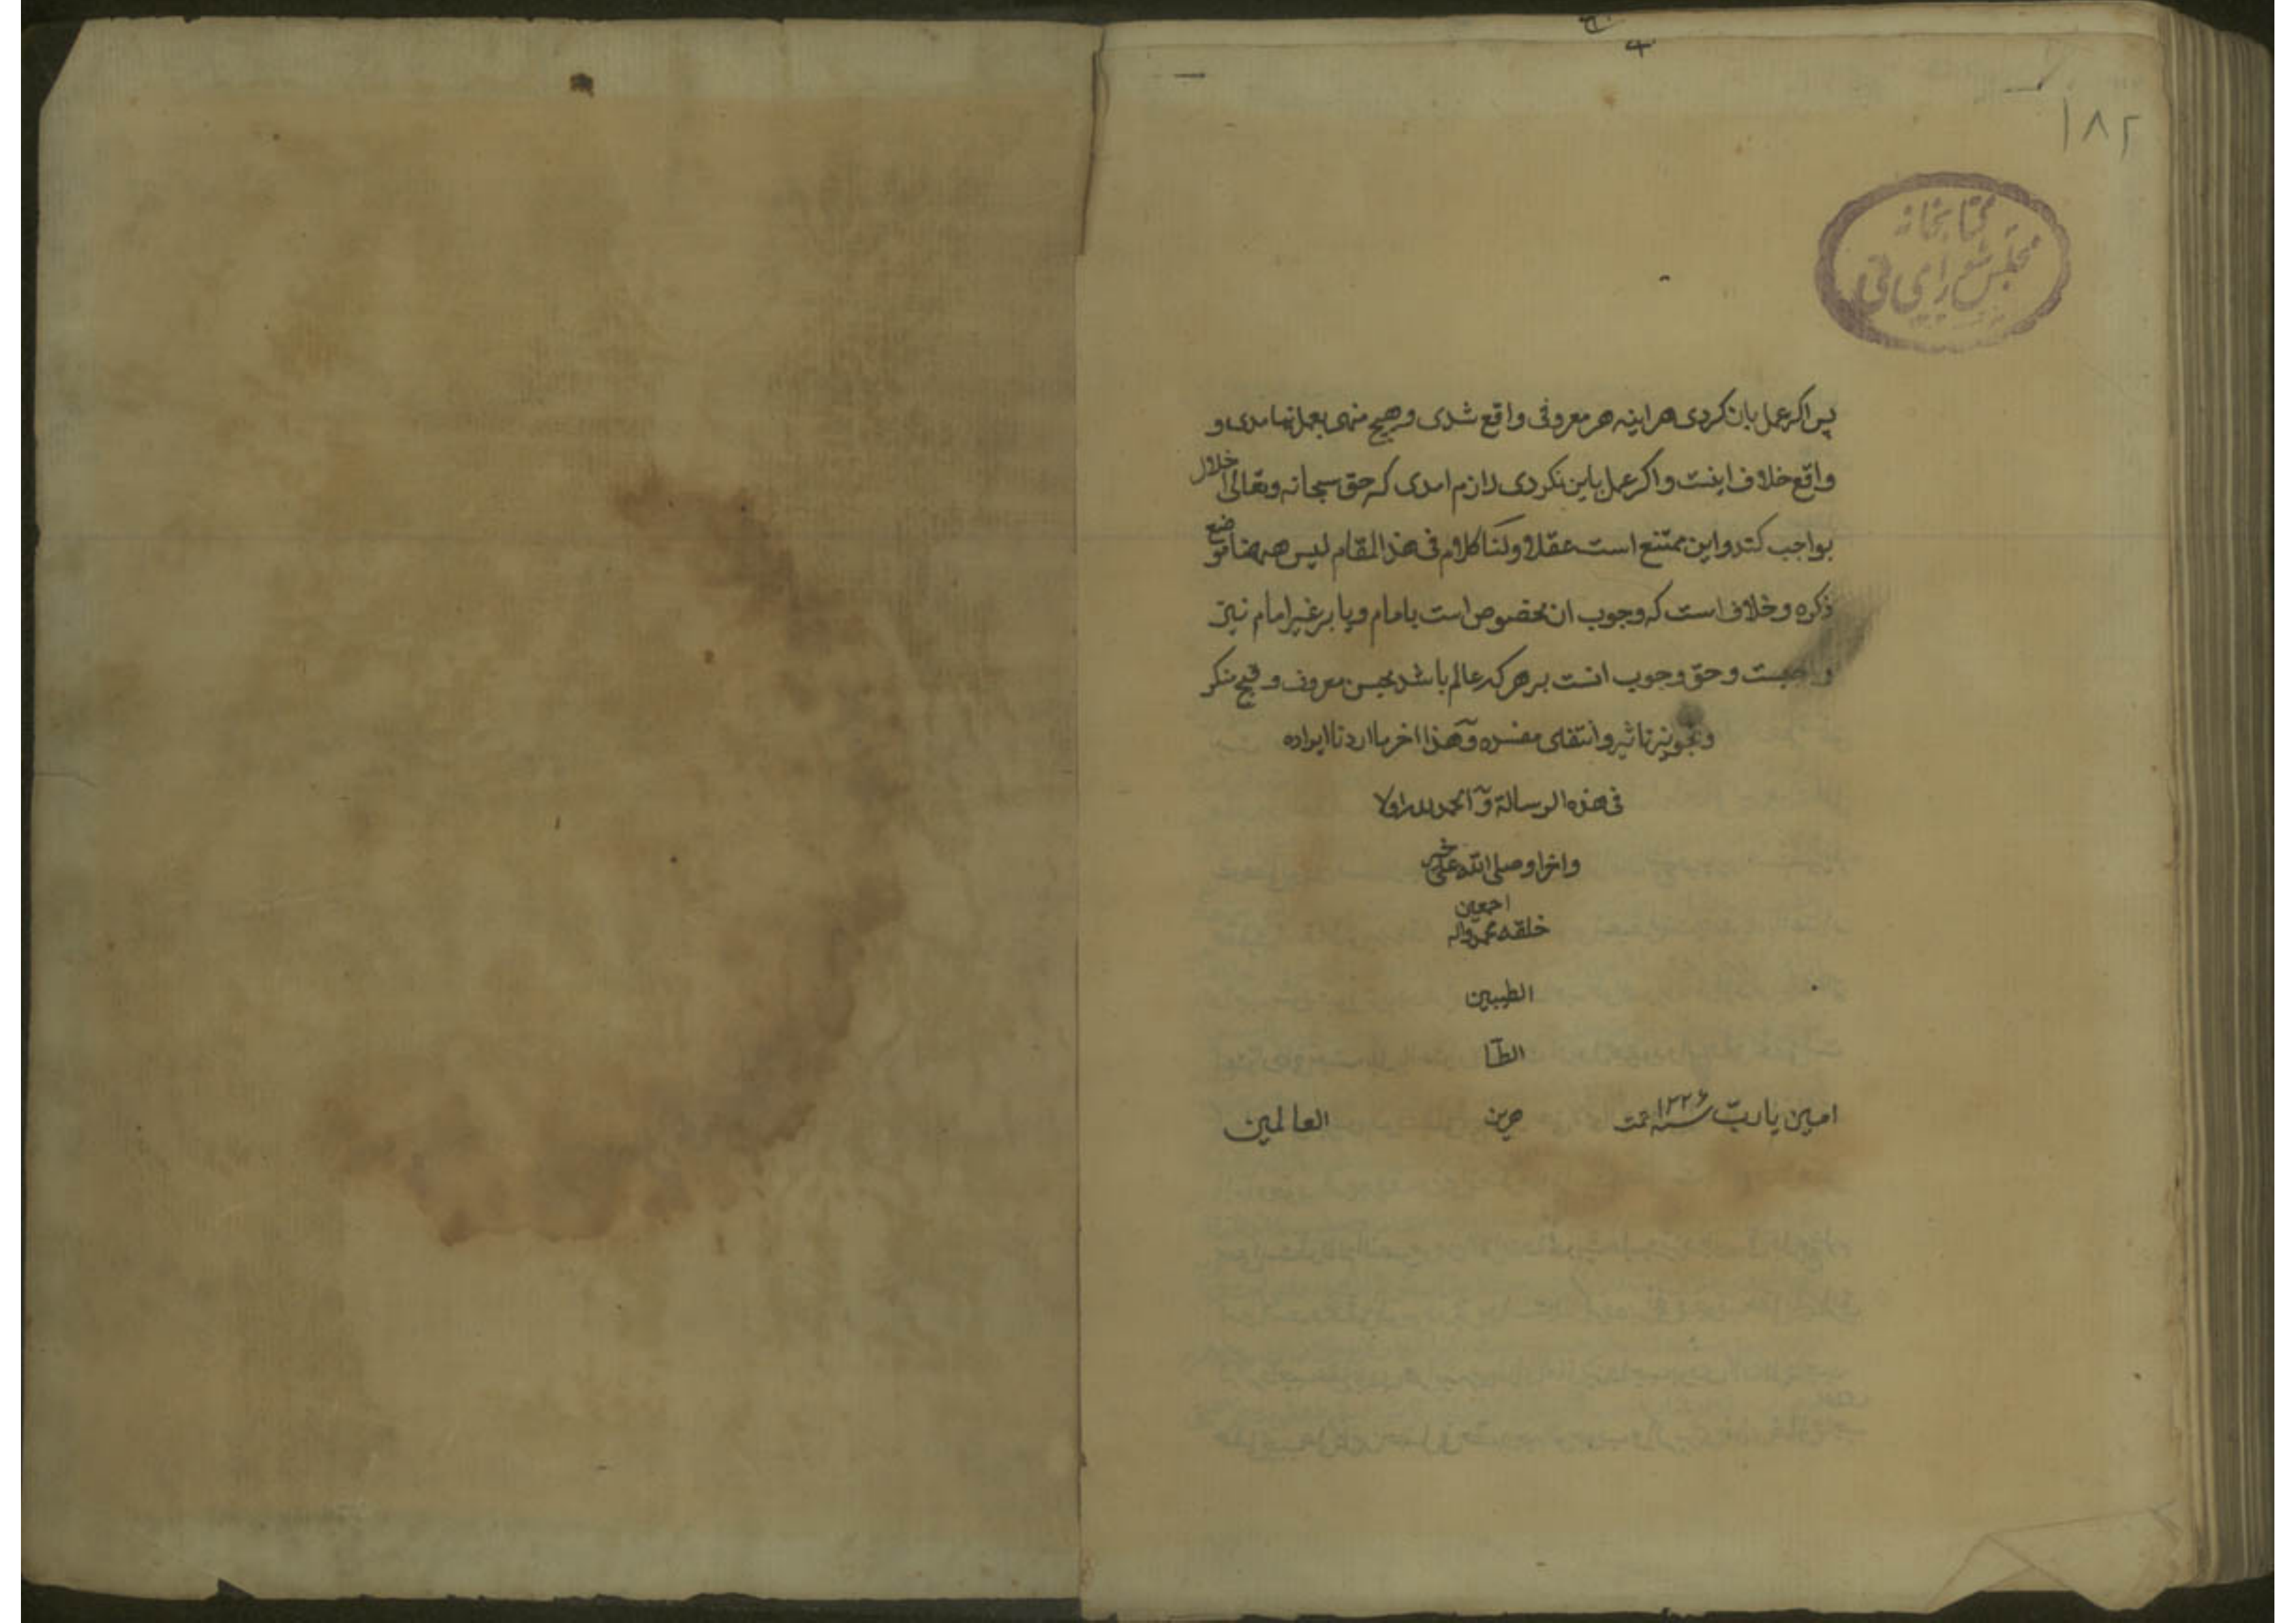 ۱۸۲
کتابخانه
مجلس شورای ملی
پس اکر عمل بان کردی هر اینه هر معروفی واقع شدی و هیچ منهی بعمل نیامدی و
واقع خلاف اینست و اکر عمل باین نکردی لازم امدی که حق سبحانه وتعالی اخلال
بواجب کند و این ممتنع است عقلا ولنا کلام فی هذا المقام لیس ههنا موضع
ذکره و خلاف است که وجوب ان مخصوص است بامام و یا بر غیر امام نیز
واجبست و حق وجوب انست بر هر که عالم باشد بحسن معروف و قبح منکر
و تجویز تاثیر و انتفای مفسده وهذا اخر ما اردنا ایراده
فی هذه الرسالة والحمد لله اولا
واخرا وصلی الله علی خیر
خلقه محمد واله اجمعین
الطیبین
الطا
هرین
امین یا رب العالمین
تمت سنه ۱۲۲۶